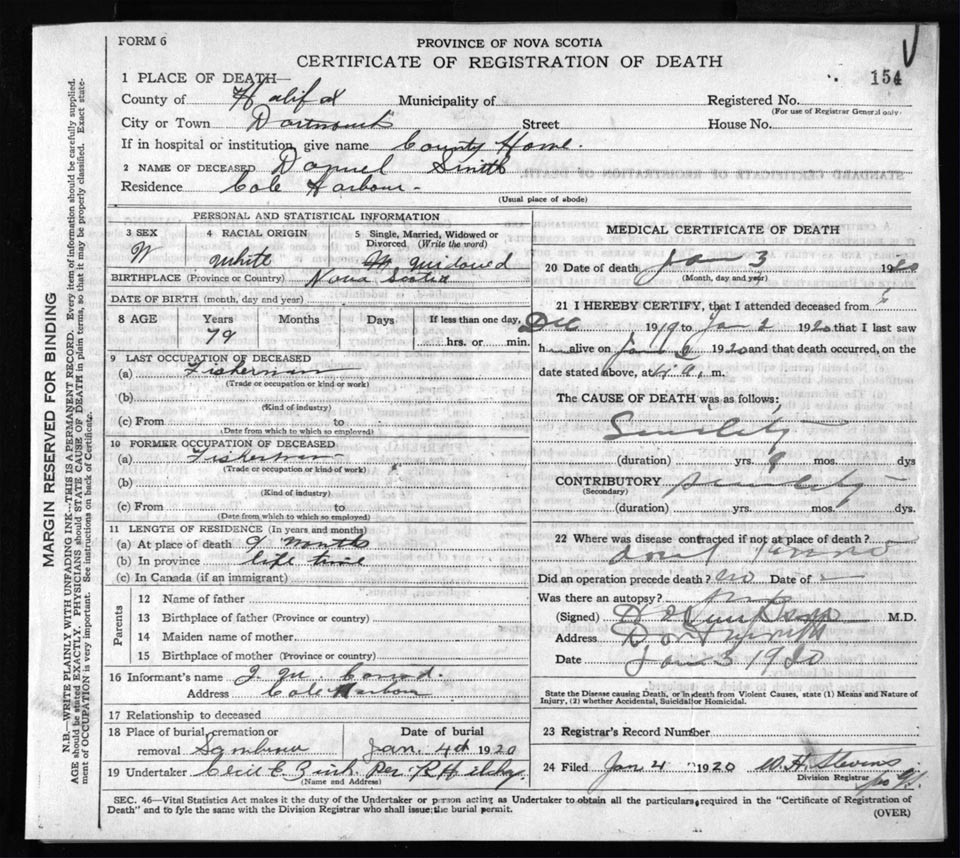 FORM 6
PROVINCE OF NOVA SCOTIA
CERTIFICATE OF REGISTRATION OF DEATH
154
1 PLACE OF DEATH—
County of Halifax Municipality of Registered No.
(For use of Registrar General only)
City or Town Dartmouth Street House No.
If in hospital or institution, give name County Home.
2 NAME OF DECEASED Daniel Smith
Residence Cole Harbour -
(Usual place of abode)
MARGIN RESERVED FOR BINDING
N.B.—WRITE PLAINLY WITH UNFADING INK—THIS IS A PERMANENT RECORD. Every item of information should be carefully supplied.
AGE should be stated EXACTLY. PHYSICIANS should STATE CAUSE OF DEATH in plain terms, so that it may be properly classified. Exact state-
ment of OCCUPATION is very important. See instructions on back of Certificate.
PERSONAL AND STATISTICAL INFORMATION
3 SEX 4 RACIAL ORIGIN 5 Single, Married, Widowed or
Divorced (Write the word)
White Widowed
BIRTHPLACE (Province or Country) Nova Scotia
DATE OF BIRTH (month, day and year)
8 AGE Years Months Days If less than one day,
79 hrs. or min.
9 LAST OCCUPATION OF DECEASED
(a) Fisherman
(Trade or occupation or kind or work)
(b)
(Kind of industry)
(c) From to
(Date from which to which so employed)
10 FORMER OCCUPATION OF DECEASED
(a) Fisherman
(Trade or occupation or kind of work)
(b)
(Kind of industry)
(c) From to
(Date from which to which so employed)
11 LENGTH OF RESIDENCE (In years and months)
(a) At place of death 9 months
(b) In province life time
(c) In Canada (if an immigrant)
Parents
12 Name of father
13 Birthplace of father (Province or country)
14 Maiden name of mother
15 Birthplace of mother (Province or country)
16 Informant's name J. M. Conrad.
Address Cole Harbour
17 Relationship to deceased
18 Place of burial, cremation or Date of burial
removal Sambro Jan. 4th 1920
19 Undertaker Cecil E. Zink. Per
(Name and Address)
MEDICAL CERTIFICATE OF DEATH
20 Date of death Jan 3 1920
(Month, day and year)
21 I HEREBY CERTIFY, that I attended deceased from
Dec 1919 to Jan 2 1920 that I last saw
h alive on Jan 2 1920 and that death occurred, on the
date stated above, at 4 a. m.
The CAUSE OF DEATH was as follows:
Senility
(duration) yrs. 9 mos. dys
CONTRIBUTORY Senility
(Secondary)
(duration) yrs. mos. dys
22 Where was disease contracted if not at place of death?
dont know
Did an operation precede death? no Date of
Was there an autopsy? no
(Signed) M.D.
Address Dartmouth
Date Jan 3 1920
State the Disease causing Death, or in death from Violent Causes, state (1) Means and Nature of
Injury, (2) whether Accidental, Suicidal or Homicidal.
23 Registrar's Record Number
24 Filed Jan 4 1920 W. H. Stevens
Division Registrar
SEC. 46—Vital Statistics Act makes it the duty of the Undertaker or person acting as Undertaker to obtain all the particulars required in the "Certificate of Registration of
Death" and to fyle the same with the Division Registrar who shall issue the burial permit.
(OVER)